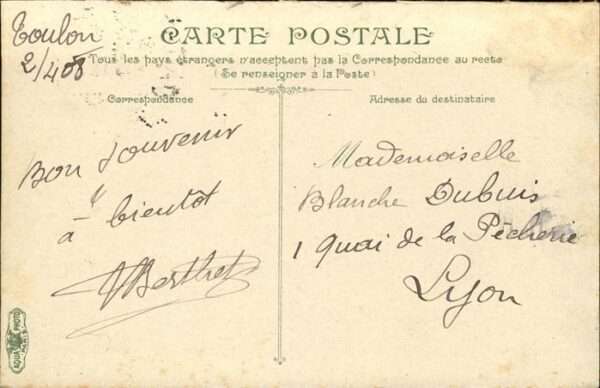 Toulon
2/4 08
CARTE POSTALE
Tous les pays étrangers n'acceptent pas la Correspondance au recto
(Se renseigner à la Poste)
Correspondance
Bon souvenir
à bientot
Berthet
Adresse du destinataire
Mademoiselle
Blanche Dubuis
1 Quai de la Pêcherie
Lyon
AQUA PHOTO
PARIS